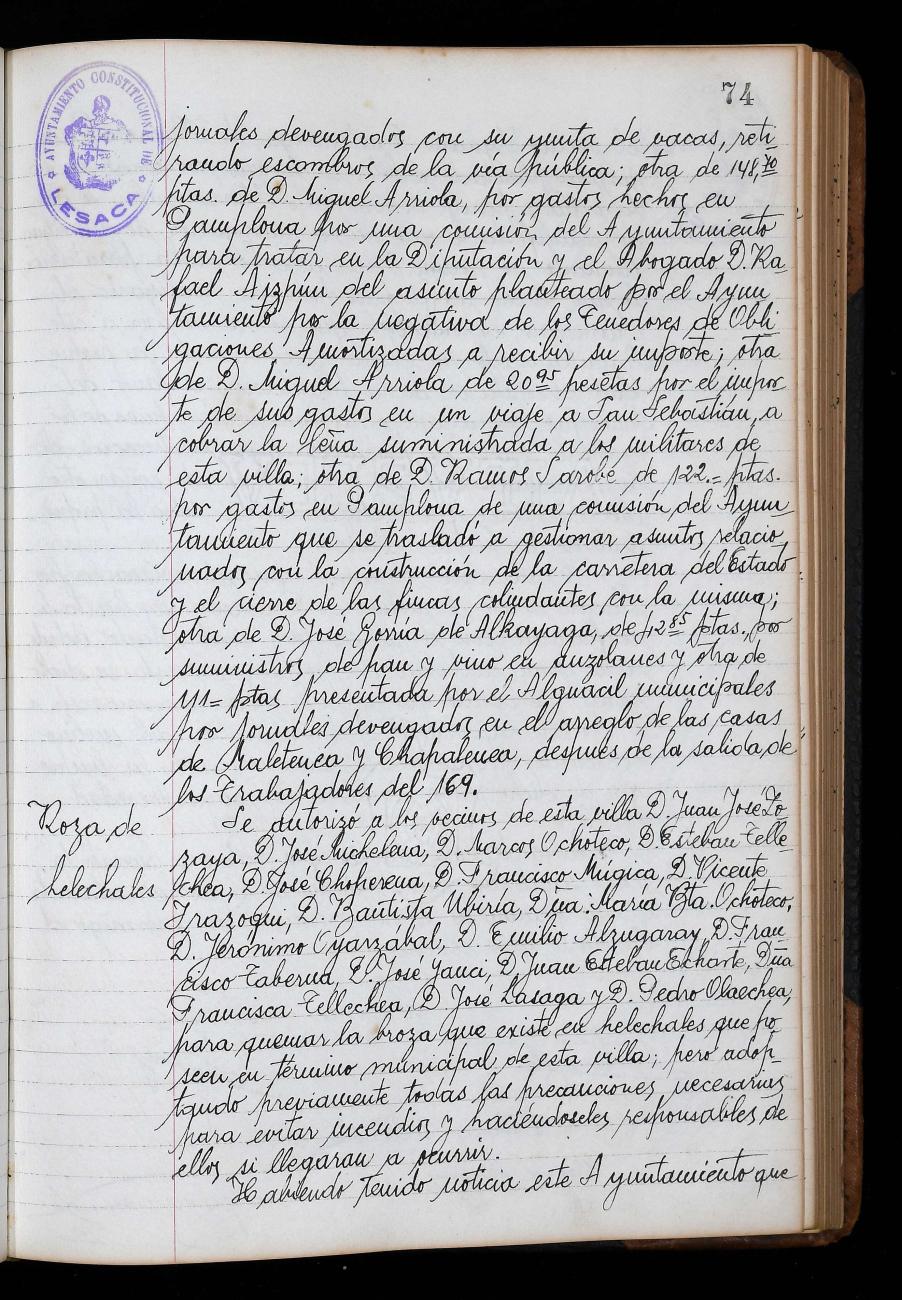 74
AYUNTAMIENTO CONSTITUCIONAL DE
LESACA
jornales devengados con su yunta de vacas, reti-
rando escombros de la vía pública; otra de 148,70
ptas. de D. Miguel Arriola, por gastos hechos en
Pamplona por una comisión del Ayuntamiento
para tratar en la Diputación y el Abogado D. Ra-
fael Aizpún del asunto planteado por el Ayun
tamiento por la negativa de los Tenedores de Obli
gaciones Amortizadas a recibir su importe; otra
de D. Miguel Arriola de 20 95 pesetas por el impor
te de sus gastos en un viaje a San Sebastián, a
cobrar la leña suministrada a los militares de
esta villa; otra de D. Ramos Sarobe de 122.= ptas.
por gastos en Pamplona de una comisión del Ayun
tamiento que se trasladó a gestionar asuntos relacio
nados con la construcción de la carretera del Estado
y el cierre de las fincas colindantes con la misma;
otra de D. José Gorría de Alkayaga, de 12 85 ptas., por
suministros de pan y vino en auzolanes y otra de
11= ptas presentada por el Alguacil municipales
por jornales devengados en el arreglo de las casas
de Maletenea y Chapalenea, después de la salida de
los Trabajadores del 169.
Roza de
helechales
Se autorizó a los vecinos de esta villa D. Juan José Lo
zaya, D. José Michelena, D. Marcos Ochoteco, D. Esteban Telle-
chea, D. José Choperena, D. Francisco Mugica, D. Vicente
Irazoqui, D. Bautista Ubiría, Dña. María Bta. Ochoteco,
D. Jerónimo Oyarzábal, D. Emilio Alzugaray, D. Fran
cisco Taberna, D. José Yanci, D. Juan Esteban Echarte, Dña
Francisca Tellechea, D. José Lasaga y D. Pedro Olaechea,
para quemar la broza que existe en helechales que po
seen en término municipal de esta villa; pero adop-
tando previamente todas las precauciones necesarias
para evitar incendios y haciéndoseles responsables de
ellos si llegaran a ocurrir.
Habiendo tenido noticia este Ayuntamiento que